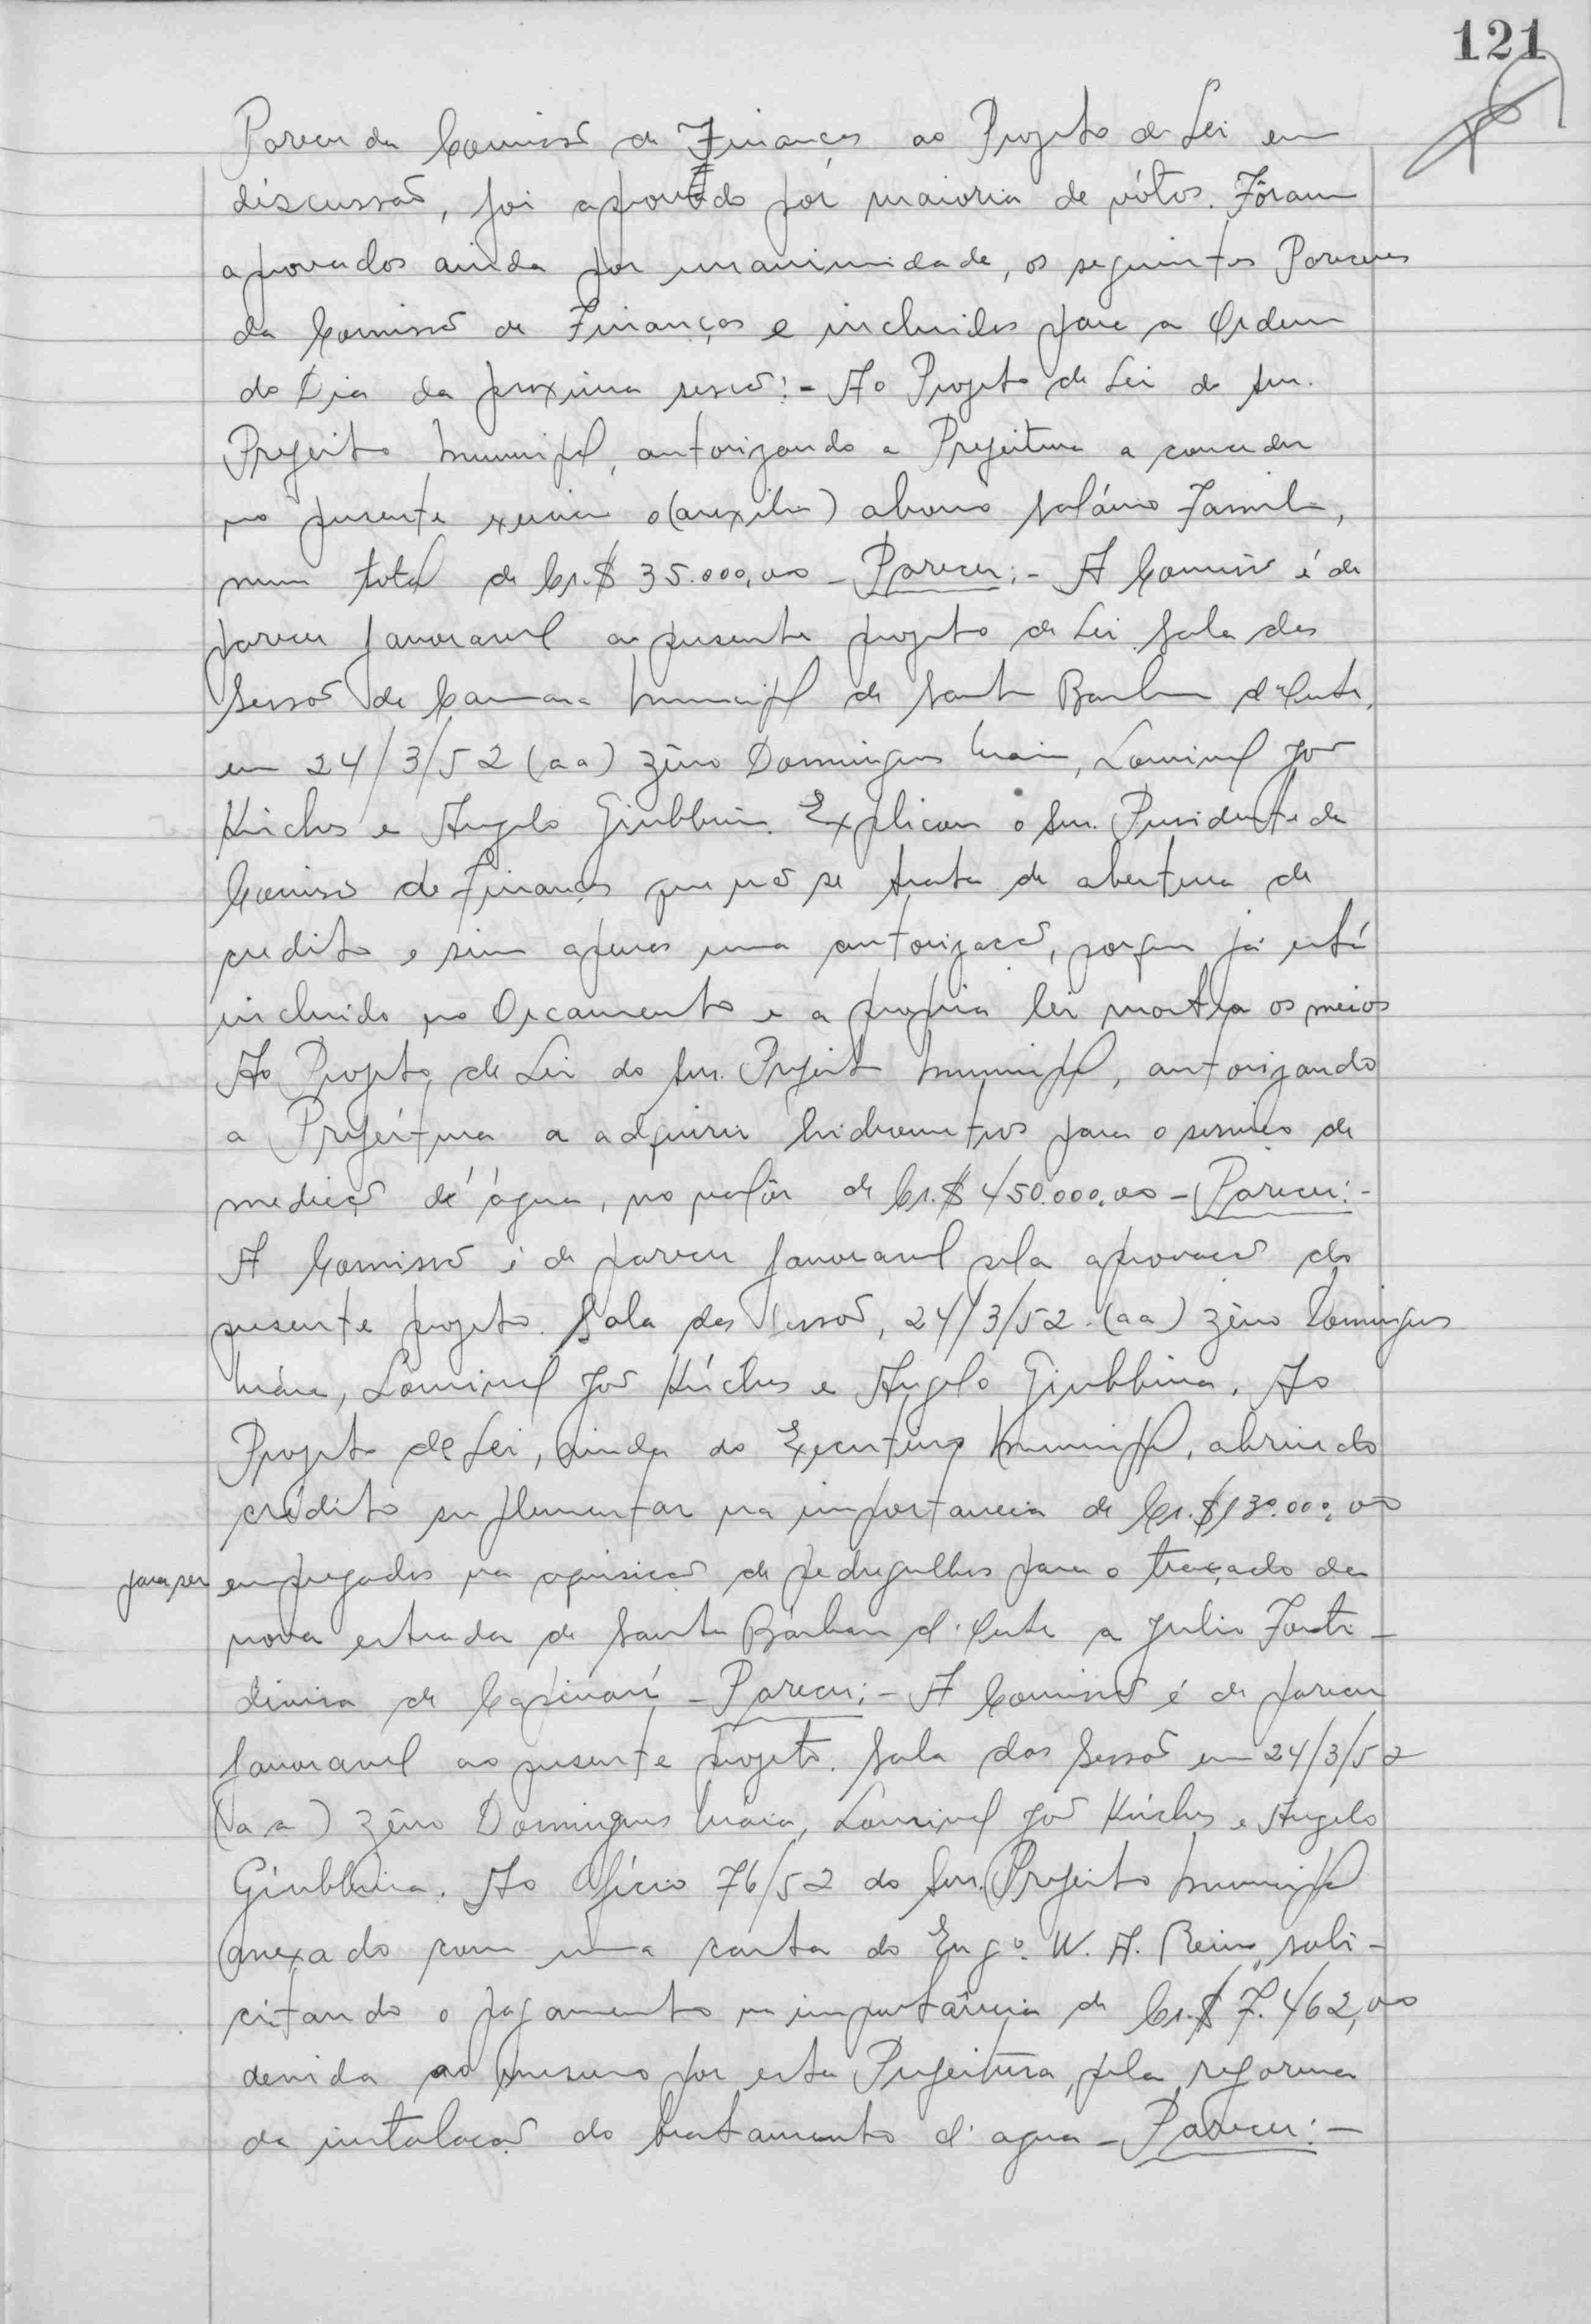 121
Parecer da Comissão de Finanças ao Projeto de Lei em
discussão, foi aprovado por maioria de vótos. Fôram
aprovados ainda por unanimidade, os seguintes Pareceres
da Comissão de Finanças e incluidos para a Ordem
do Dia da proxima sessão:- Ao Projeto de Lei do Snr.
Prefeito Municipal, autorizando a Prefeitura a conceder
no presente exercicio o (auxilio) abono salário Familia,
num total de Cr.$ 35.000,00 - Parecer:- A Comissão é de
parecer favoravel ao presente projeto de Lei. Sala das
Sessões da Camara Municipal de Santa Barbara d'Oeste,
em 24/3/52 (aa) Zêno Domingues Maia, Lourival José
Kirches e Angelo Giubbina. Explicou o Snr. Presidente da
Comissão de Finanças que não se trata de abertura de
credito e sim apenas uma autorização, porque já está
incluido no Orcamento e a propria lei mostra os meios
Ao Projeto de Lei do Snr. Prefeito Municipal, autorizando
a Prefeitura a adquirir hidrometros para o serviço de
medição de água, no valôr de Cr.$ 450.000,00 - Parecer:-
A Comissão é de parecer favoravel pela aprovação do
presente projeto. Sala das Sessões, 24/3/52 - (aa) Zêno Domingues
Maia, Lourival José Kirches e Angelo Giubbina. Ao
Projeto de Lei, ainda do Executivo Municipal, abrindo
crédito suplementar na importancia de Cr.$ 130.000,00
para ser empregados na aquisição de pedregulhos para o traçado da
nova estrada de Santa Bárbara d'Oeste a Julio
divisa de Capivarí - Parecer:- A Comissão é de parecer
favoravel ao presente projeto. Sala das Sessões em 24/3/52
(aa) Zêno Domingues Maia, Lourival José Kirches e Angelo
Giubbina. Ao Ofício 76/52 do Snr. Prefeito Municipal
anexado com uma carta do Engº. W. A. soli-
citando o pagamento na importância de Cr.$ 7.462,00
devida ao mesmo por esta Prefeitura, pela reforma
da instalação do tratamento d'agua - Parecer:-